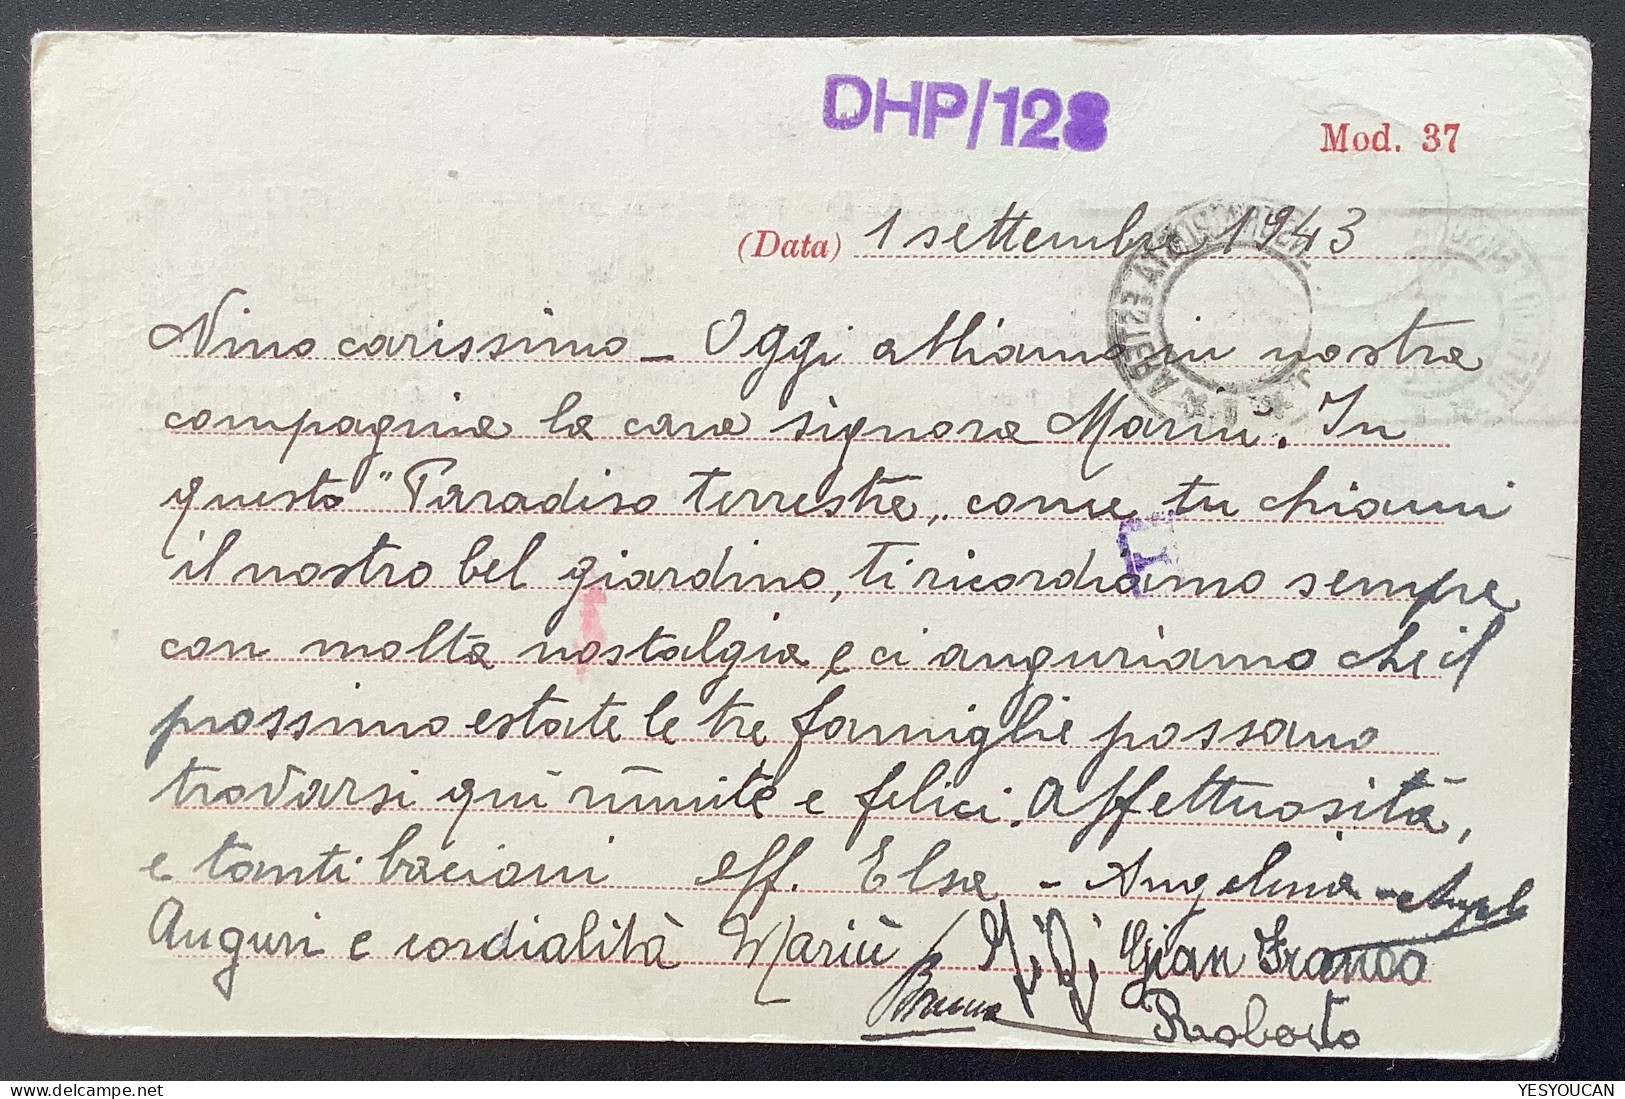 DHP/128
Mod. 37
(Data) 1 settembre 1943
Nino carissimo – Oggi abbiamo in nostra
compagnia la cara signora Marin. In
questo "Paradiso terrestre„ come tu chiami
il nostro bel giardino, ti ricordiamo sempre
con molta nostalgia e ci auguriamo che il
prossimo estate le tre famiglie possano
trovarsi qui riunite e felici. Affettuosità,
e tanti bacioni aff. Elsa - Angelina -
Auguri e cordialità Mariù Gigi Gian Franco
Bruno Roberto
T
YESYOUCAN